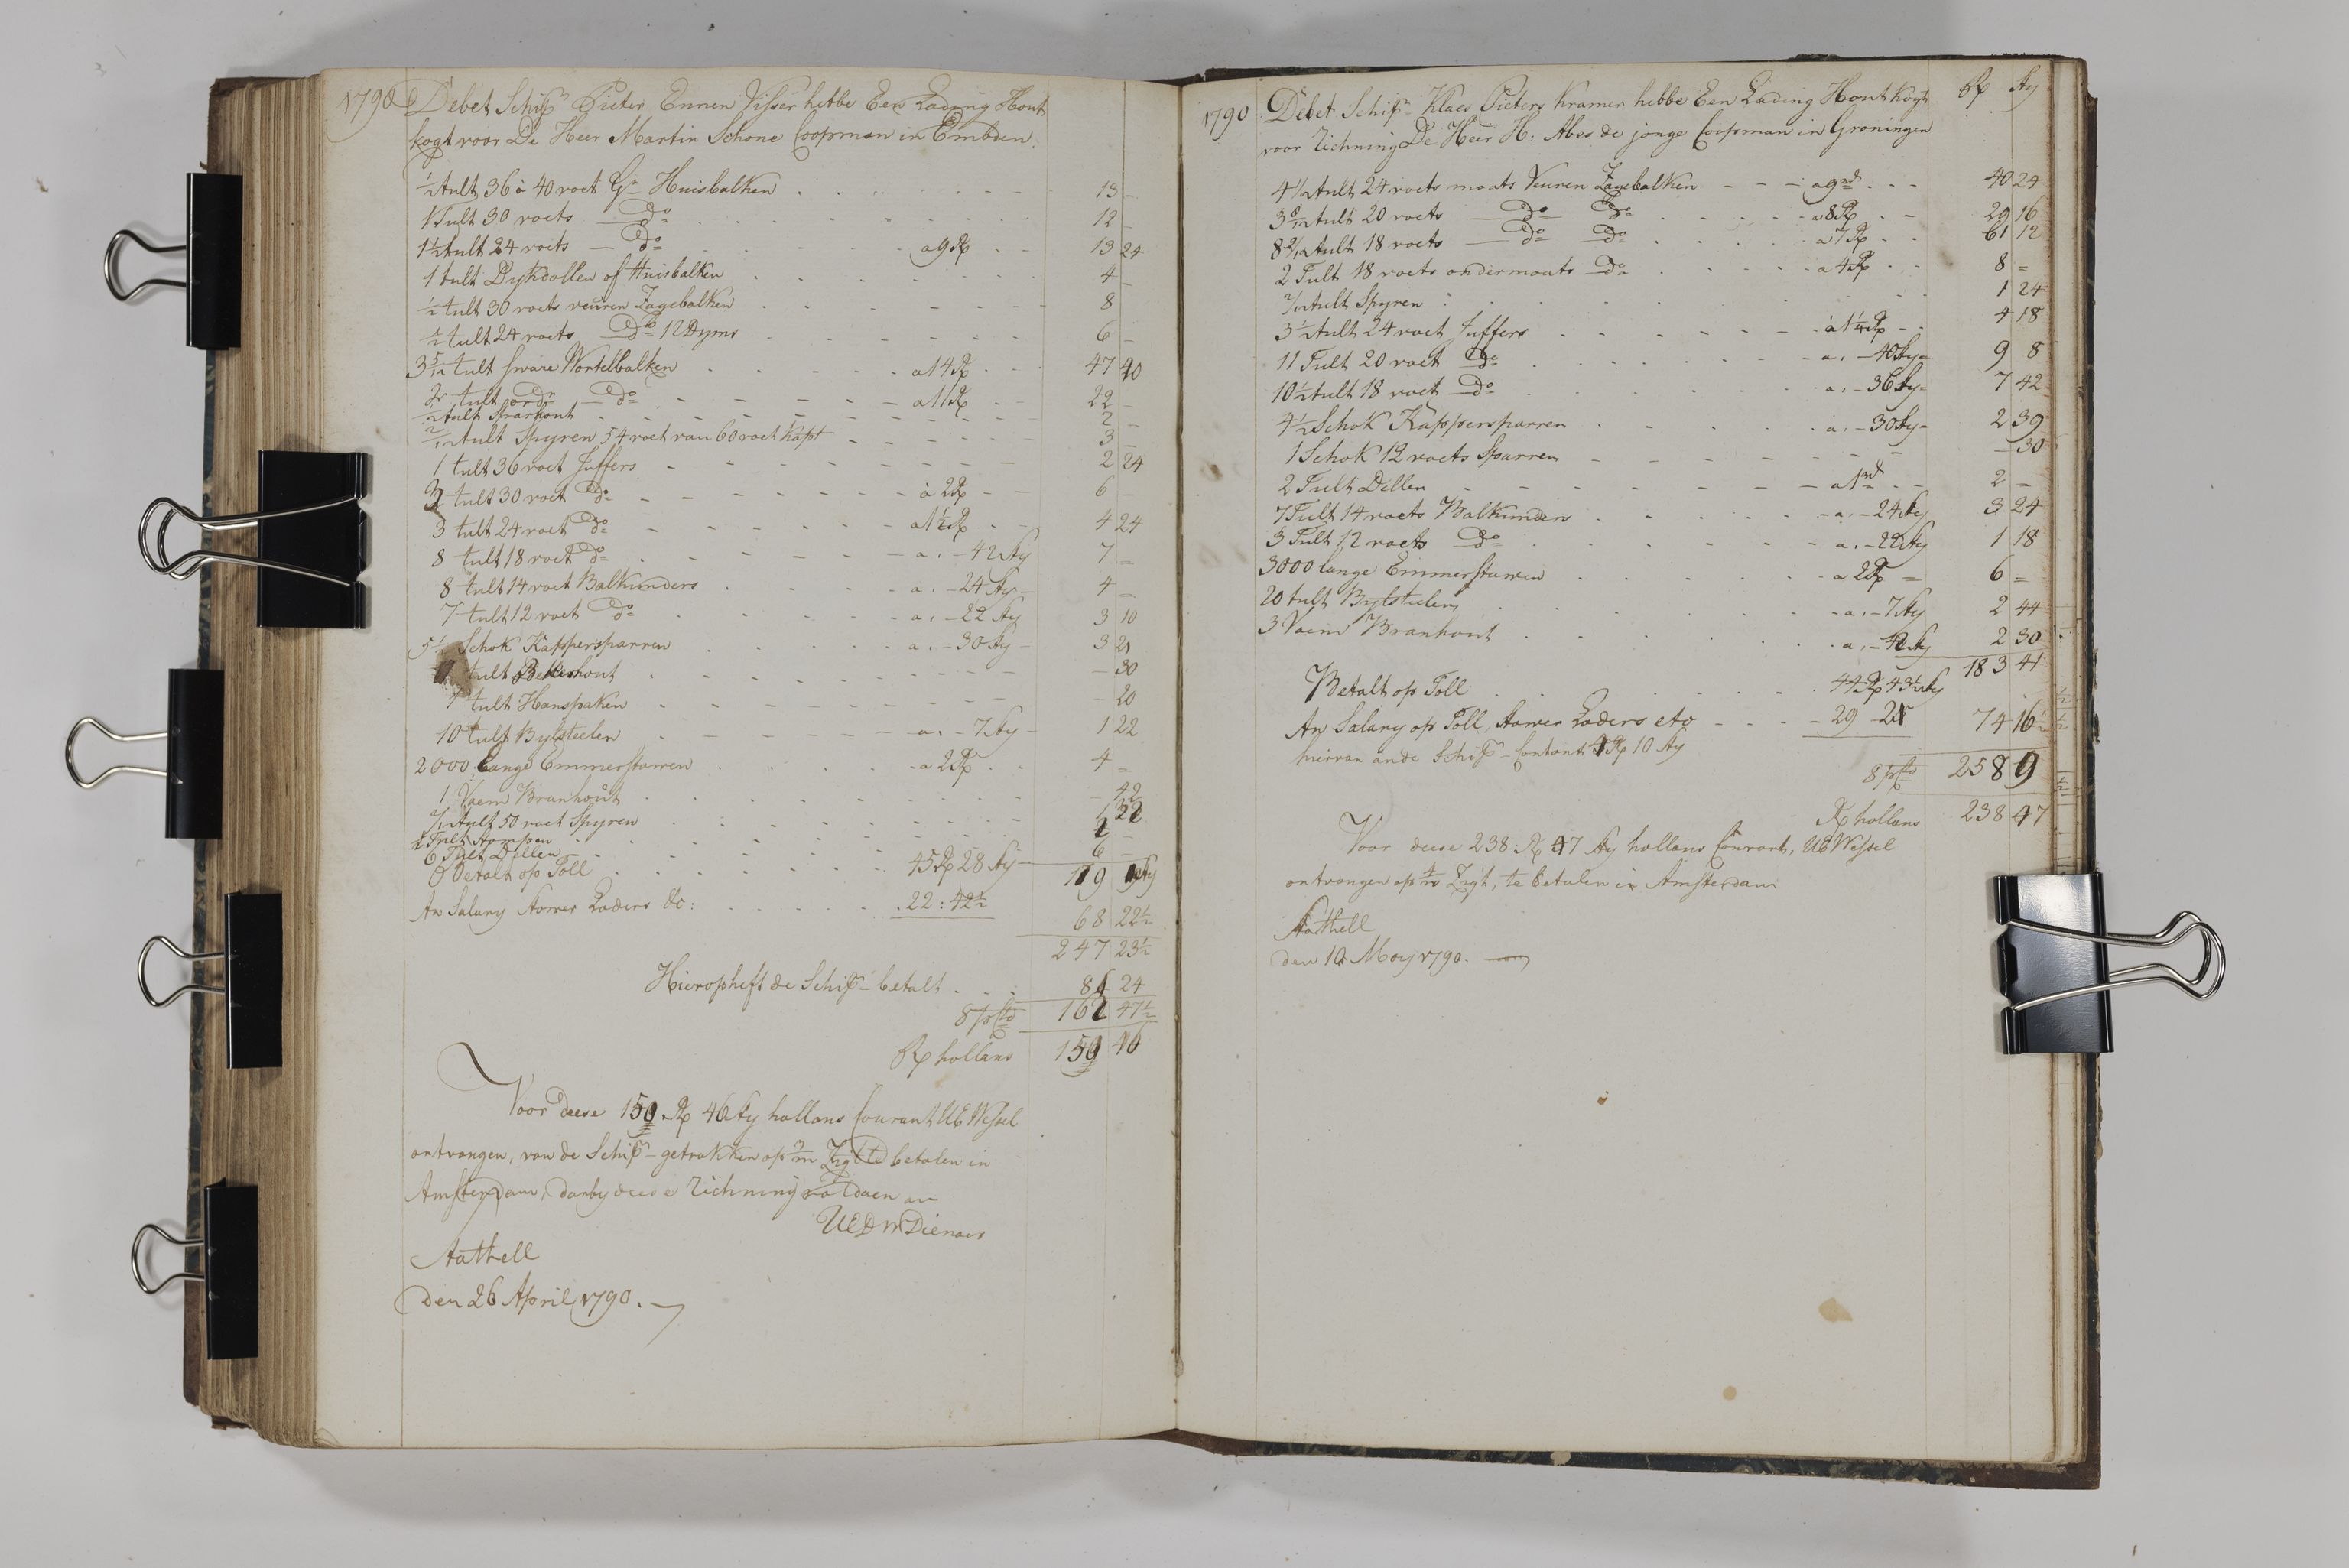 1790 Debet Schipr Pieter Ennen Visser hebbe Een Lading Hout
kogt voor De Heer Martin Schone Coopman in Embden.
1/2 tult 36 à 40 voet Gr Huisbalken 13 -
1 Tult 30 voets Do 12
1 1/2 tult 24 voets - Do a 9 R 13 24
1 tult Dykdollen of Huisbalken 4 -
1/2 tult 30 voets veuren Zagebalken 8
1/2 tult 24 voets Do 12 Dyms 6 -
3 5/12 tult sware Wortelbalken a 14 R 47 40
2 tult ordr Do a 11 R 22 -
1/2 tult 2 -
2/12 tult Spyren 54 voet van 60 voet kapt 3 -
1 tult 36 voet Juffers 2 24
3 tult 30 voet Do à 2 R 6 -
3 tult 24 voet Do a 1 1/2 R 4 24
8 tult 18 voet Do a. - 42 sty 7 -
8 tult 14 voet Balkunders a. - 24 sty 4 -
7 tult 12 voet Do a. - 22 sty 3 10
5 1/2 Schok Kappersparren a. - 30 sty 3 21
tult - 30
1 tult Hanspaken - 20
10 tult Bylsteelen a. - 7 sty 1 22
2000 Lange Emmerstawen a 2 R 4 -
1 Vaem Branhout - 42
2/12 tult 50 voet Spyren 1 32
Tult 2 -
6 Tult Dellen 6 -
Betalt op Toll 45 R 28 sty 179 1 sty
An Salary Stower Laders do: 22 : 42 1/2
68 22 1/2
247 23 1/2
Hierop heft de Schipr betalt 84 24
8 p Cto 162 47 1/2
R hollans 150 46
Voor deese 150 R 46 sty hollans Courant UE Wessel
ontvangen, van de Schipr getrokken op Zigt te betalen in
Amsterdam, darby deese Richning voldaen an
UED W Dienaer
Aathell
den 26 April 1790.
1790 Debet Schipr Klaes Pieters Kramer hebbe Een Lading Hout kogt R sty
voor Richning De Heer H: Abes de jonge Coopman in Groningen
4 1/2 tult 24 voets maats Veuren Zagebalken a 9 rd 40 24
3 8/12 tult 20 voets Do Do a 8 R 29 16
8 9/12 tult 18 voets Do Do a 7 R 61 12
2 Tult 18 voets ondermaats Do a 4 R 8 =
2/12 tult Spyren 1 24
3 1/2 tult 24 voet Juffers à 1 1/4 R 4 18
11 Tult 20 voet Do a. - 40 sty 9 8
10 1/2 tult 18 voet Do a. - 36 sty 7 42
4 1/2 Schok Kappersparren a. - 30 sty 2 39
1 Schok 12 voets Sparren - 30
2 Tult Dellen a 1 rd 2 -
7 Tult 14 voets Balkunders a. - 24 sty 3 24
3 Tult 12 voets Do a. - 22 sty 1 18
3000 lange Emmerstawen a 2 R 6 =
20 tult Bylsteelen a. - 7 sty 2 44
3 Vaem Branhout a. - 42 sty 2 30
183 41
Betalt op Toll 44 R 43 1/2 sty
An Salary op Toll, Stower Laders etc 29 - 21 74 16 1/2
hiervan ande Schipr Contant 4 R 10 sty
8 p Cto 258 9 1/2
R hollans 238 47
Voor deese 238 R 47 sty hollans Courant, UE Wessel
ontvangen op Zigt, te betalen in Amsterdam
Aathell
den 10 May 1790.